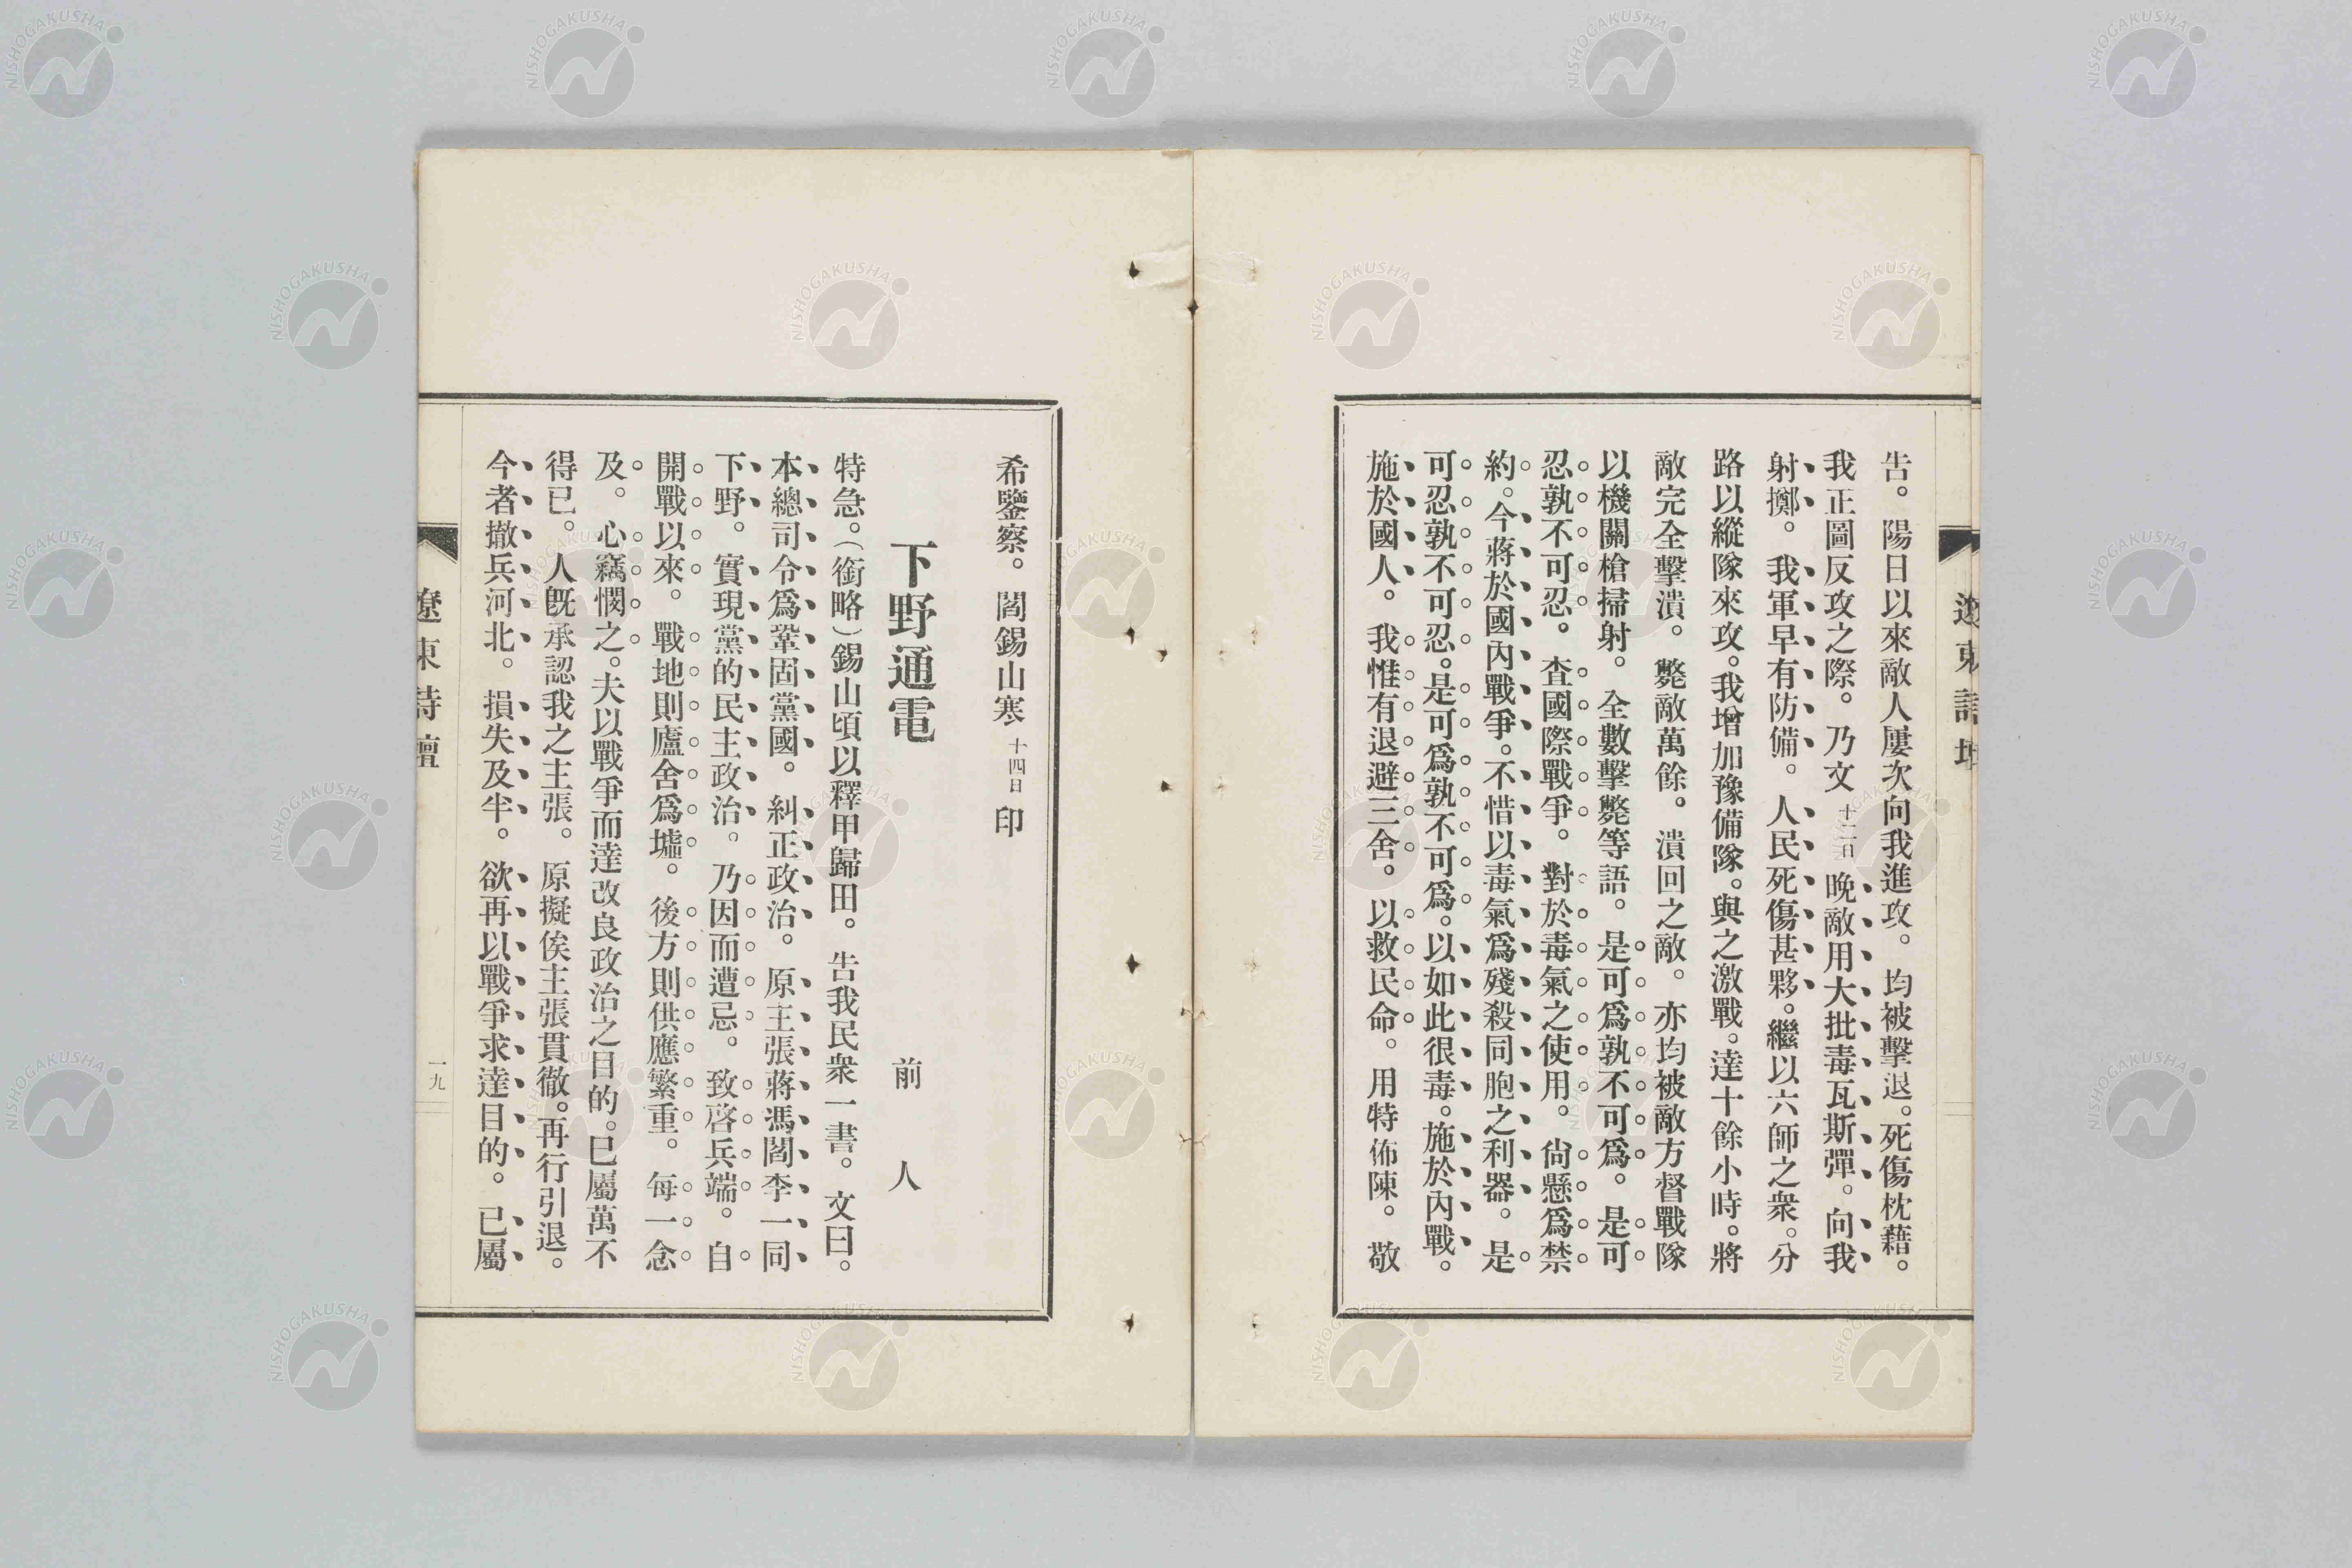 告。陽日以來敵人屢次向我進攻。均被擊退。死傷枕藉。
我正圖反攻之際。乃文十二日晚敵用大批毒瓦斯彈。向我
射擲。我軍早有防備。人民死傷甚夥。繼以六師之衆。分
路以縱隊來攻。我增加豫備隊。與之激戰。達十餘小時。將
敵完全擊潰。斃敵萬餘。潰回之敵。亦均被敵方督戰隊
以機關槍掃射。全數擊斃等語。是可爲孰不可爲。是可
忍孰不可忍。查國際戰爭。對於毒氣之使用。尙懸爲禁
約。今蔣於國內戰爭。不惜以毒氣爲殘殺同胞之利器。是
可忍孰不可忍。是可爲孰不可爲。以如此很毒。施於內戰。
施於國人。我惟有退避三舍。以救民命。用特佈陳。敬
希鑒察。閻錫山寒十四日印
下野通電 前人
特急。(銜略)錫山頃以釋甲歸田。告我民衆一書。文曰。
本總司令爲鞏固黨國。糾正政治。原主張蔣馮閻李一同
下野。實現黨的民主政治。乃因而遭忌。致啓兵端。自
開戰以來。戰地則廬舍爲墟。後方則供應繁重。每一念
及。心竊憫之。夫以戰爭而達改良政治之目的。已屬萬不
得已。人旣承認我之主張。原擬俟主張貫徹。再行引退。
今者撤兵河北。損失及半。欲再以戰爭求達目的。已屬
遼東詩壇
一九
NISHOGAKUSHA